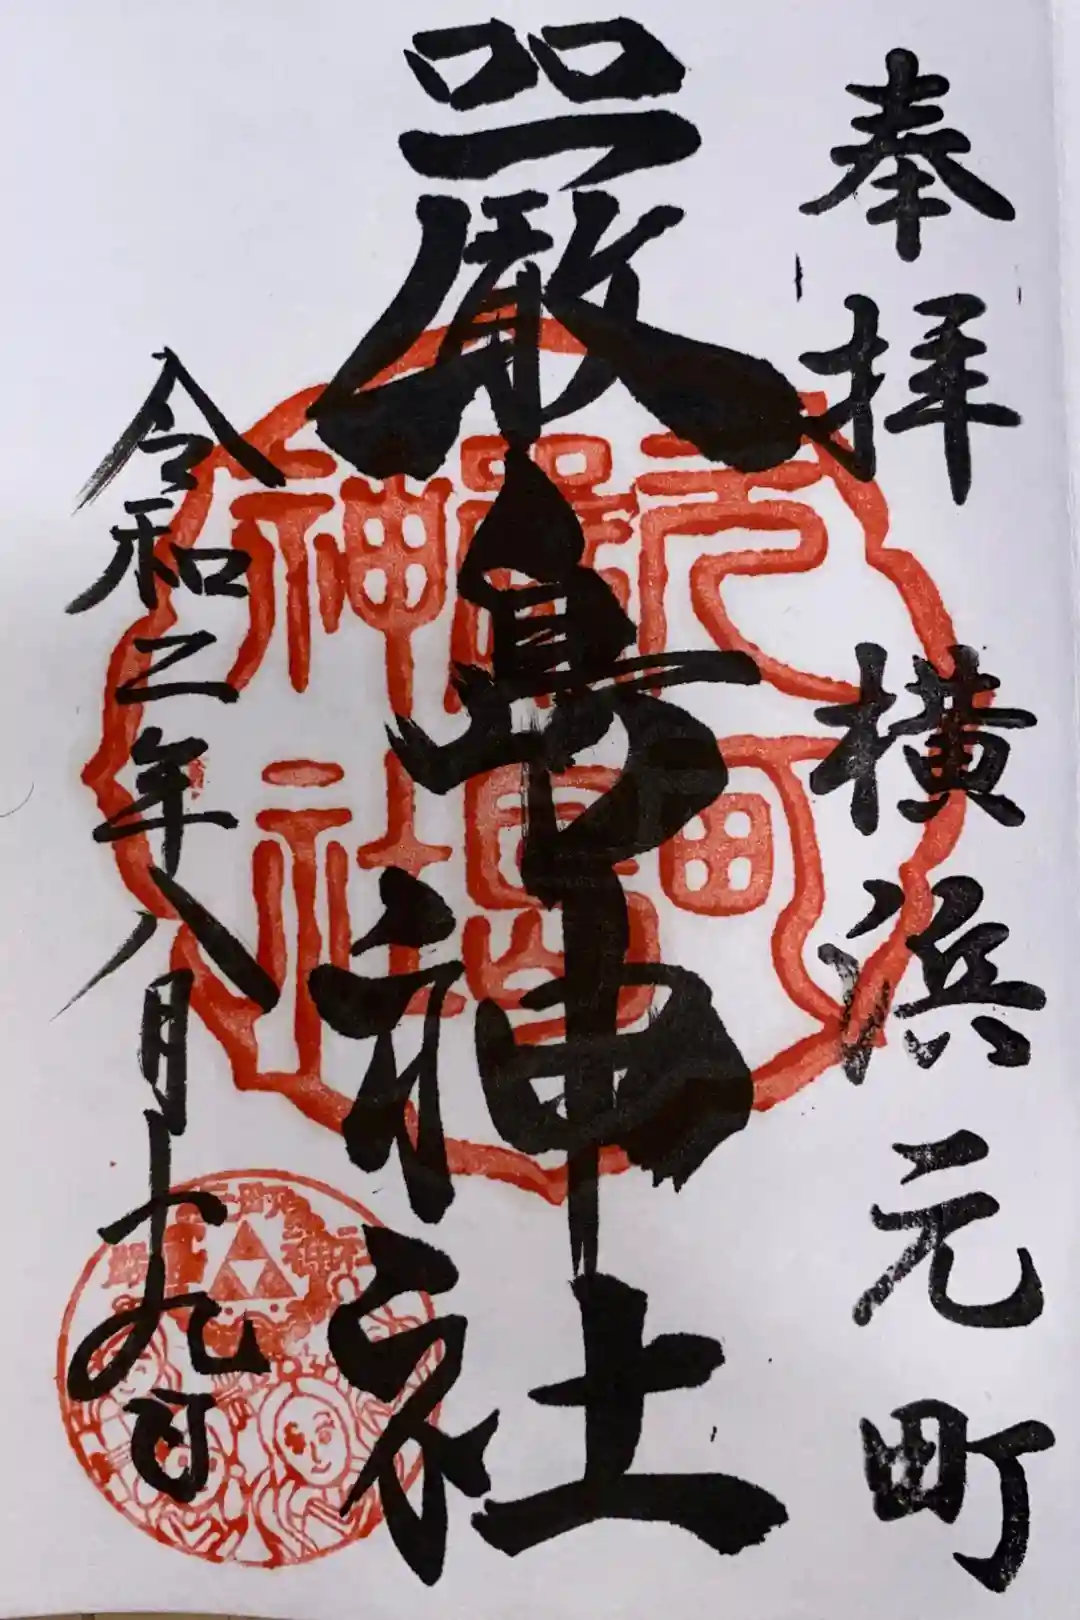 奉拝 横浜元町
嚴島神社
令和二年八月十九日
元町
嚴島
神社